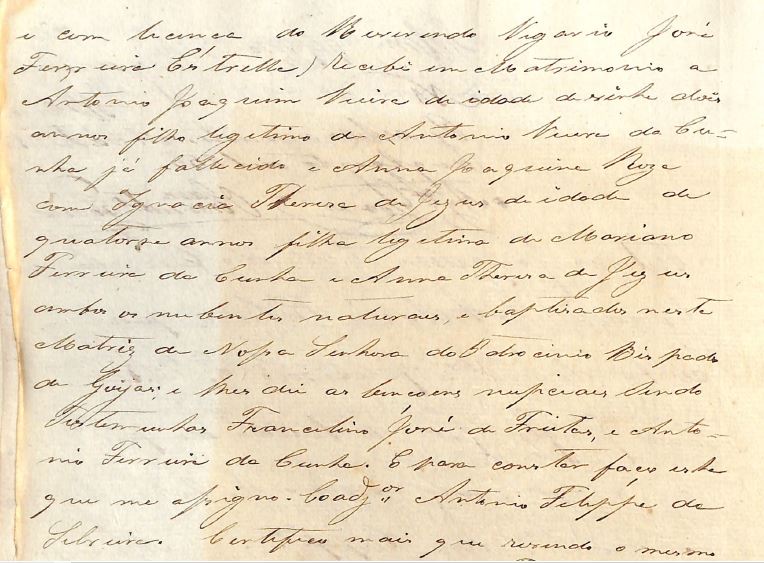 e com licença do Reverendo Vigario José
Ferreira Estrella) recebi em Matrimonio a
Antonio Joaquim Vieira de idade de vinte dois
annos filho legitimo de Antonio Vieira da Cu=
nha já fallecido e Anna Joaquina Roza
com Ignacia Thereza de Jezus de idade de
quatorze annos filha legitima de Mariano
Ferreira da Cunha e Anna Thereza de Jezus
ambos os nubentes naturais, e baptisados neste
Matriz de Nossa Senhora do Patrocinio Bispado
de Goyas; e lhes dei as bençoens nupciaes sendo
Testemunhas Francelino José de Freitas, e Anto=
nio Ferreira da Cunha. E para constar faço este
que me assigno. Coadjor Antonio Felippe da
Silveira. Certifico mais que sendo o mesmo